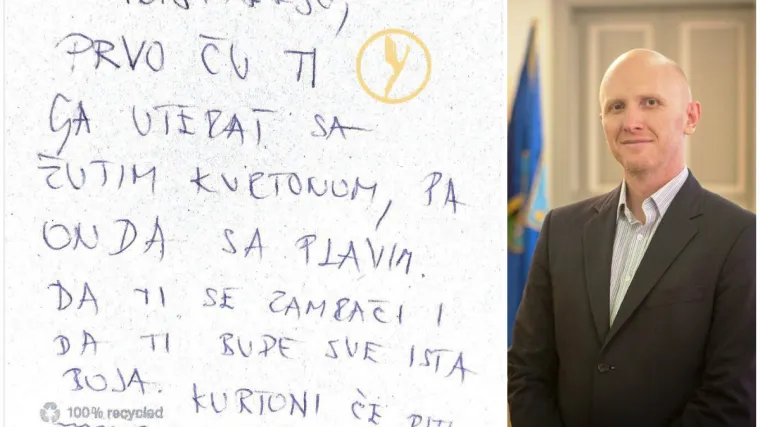 PRVO ĆU TI
GA UTERAT SA
ŽUTIM KURTONOM, PA
ONDA SA PLAVIM.
DA TI SE ZAMRAČI I
DA TI BUDE SVE ISTA
BOJA. KURTONI ĆE
100% recycled